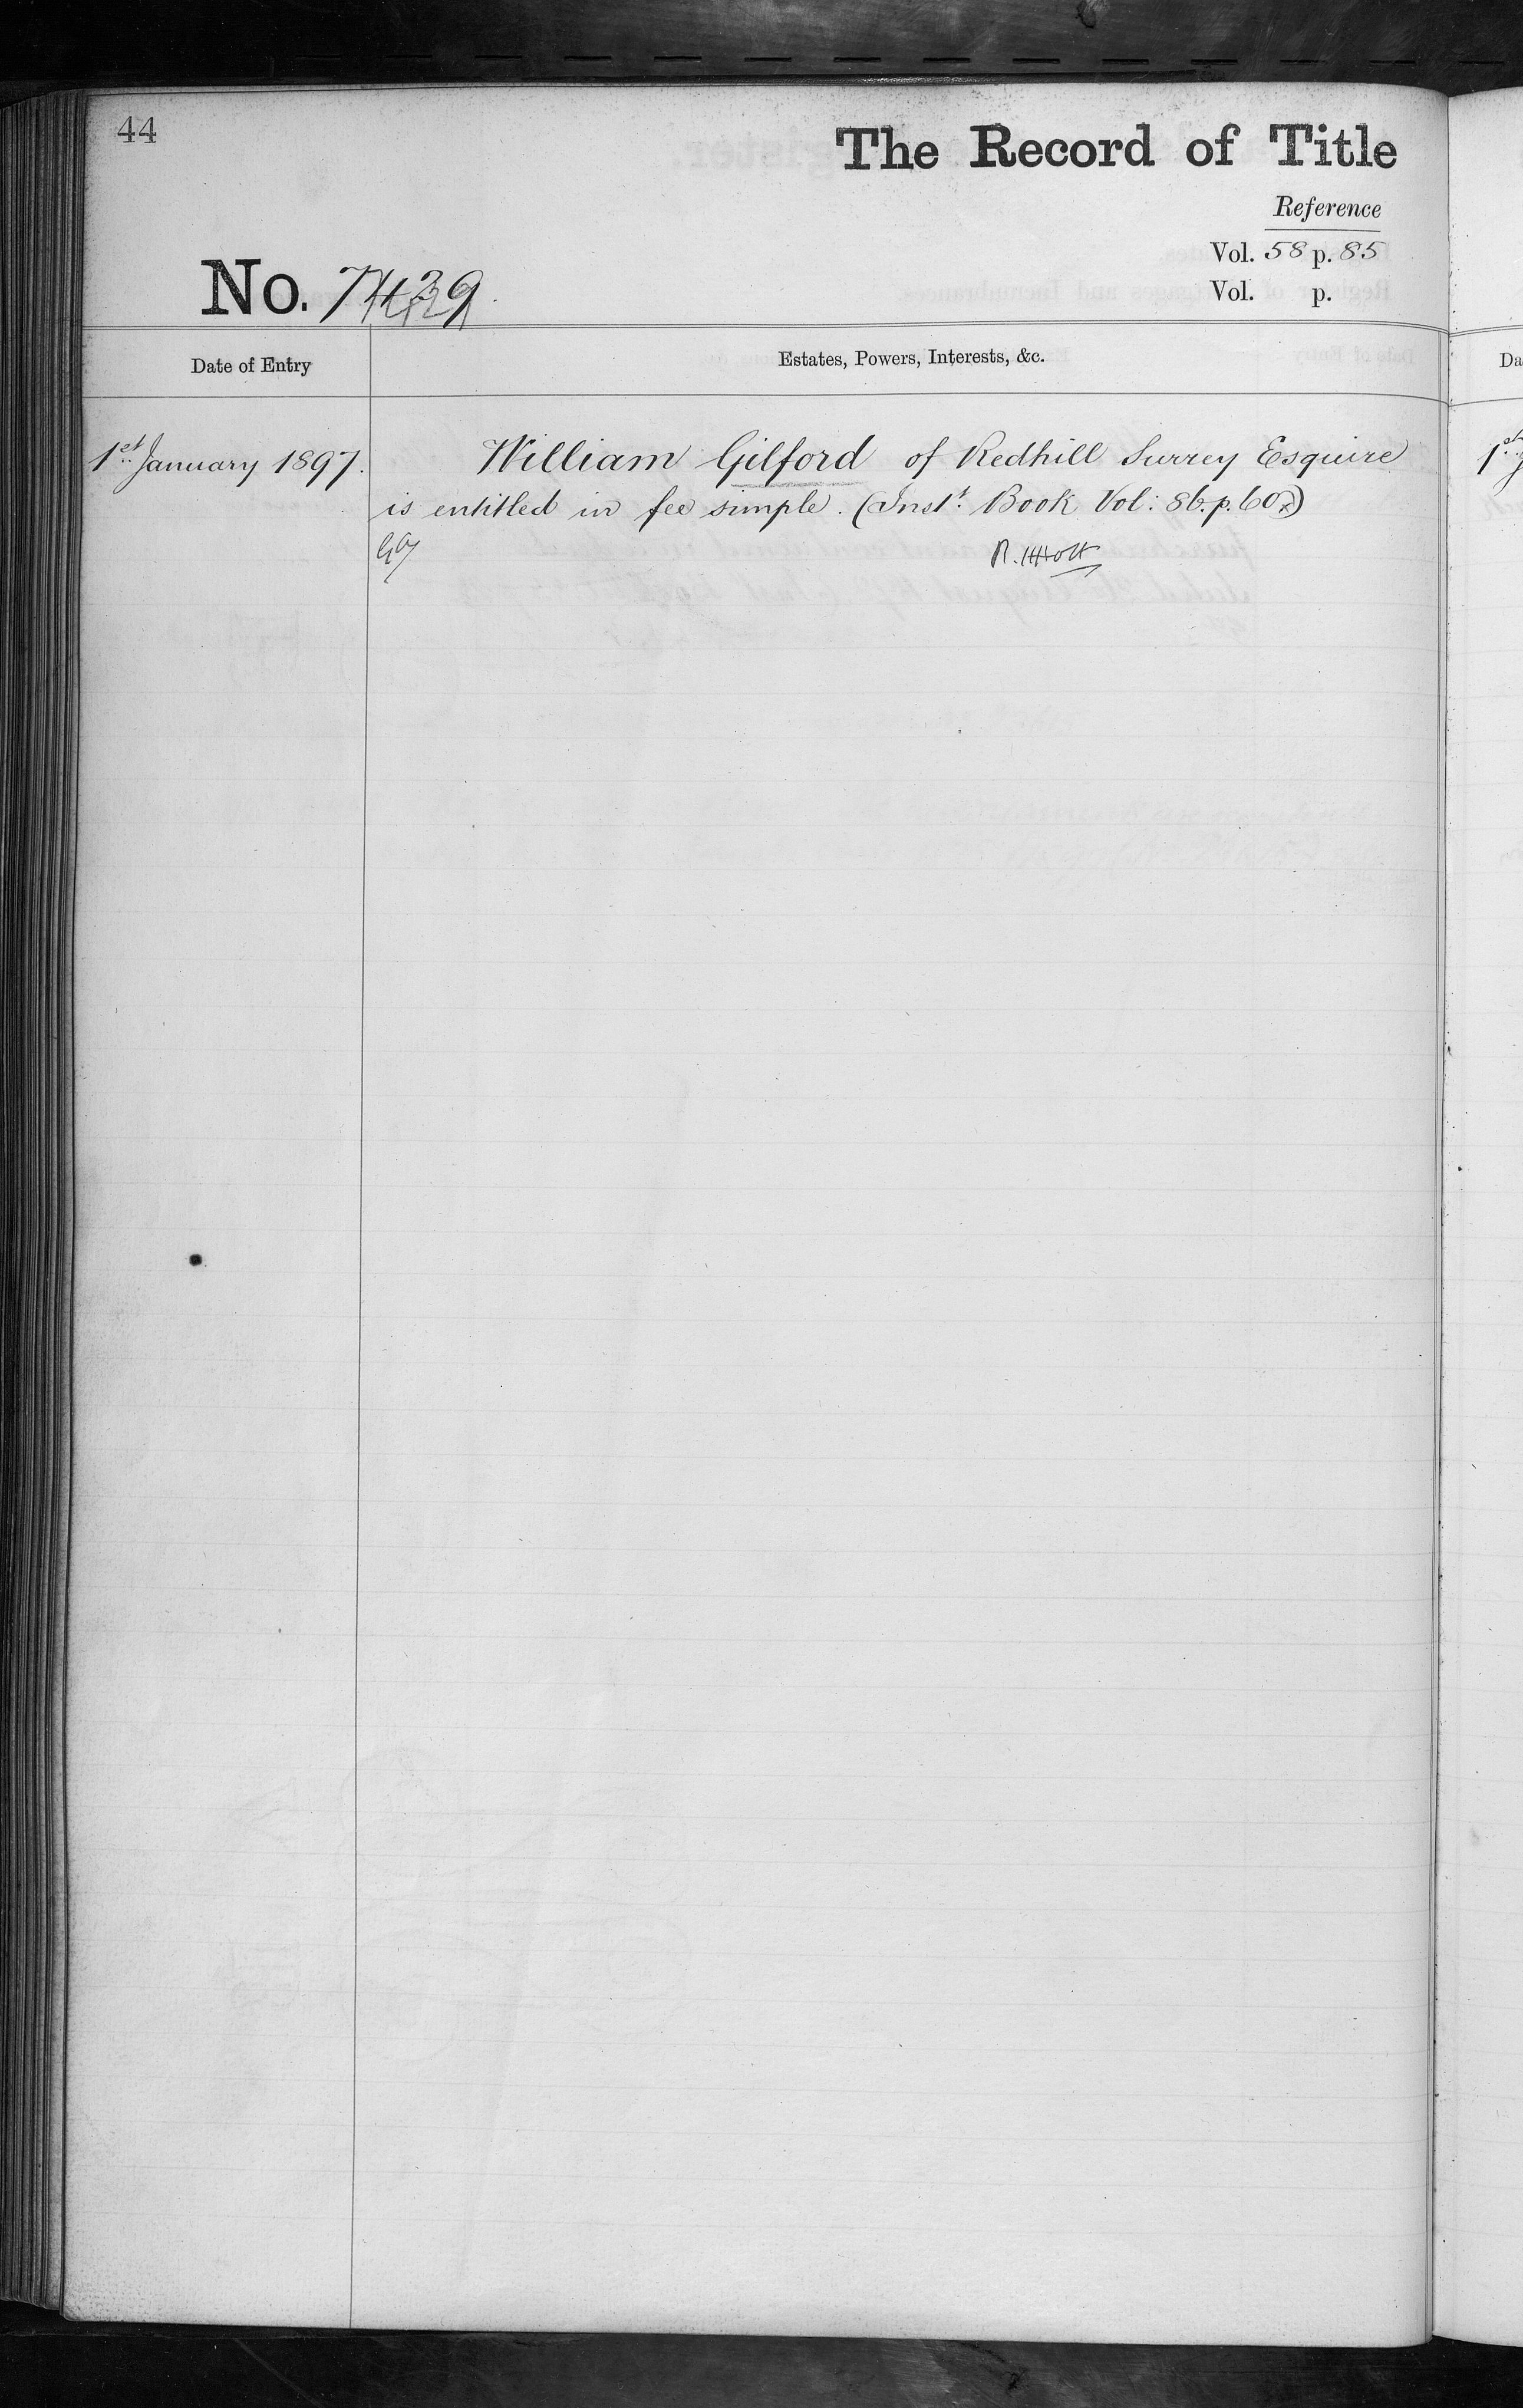 44
The Record of Title
Reference
Vol. 58 p. 85
Vol. p.
No. 7439.
Date of Entry
Estates, Powers, Interests, &c.
1st January 1897. William Gilford of Redhill Surrey Esquire
is entitled in fee simple. (Inst. Book Vol: 86. p. 607)